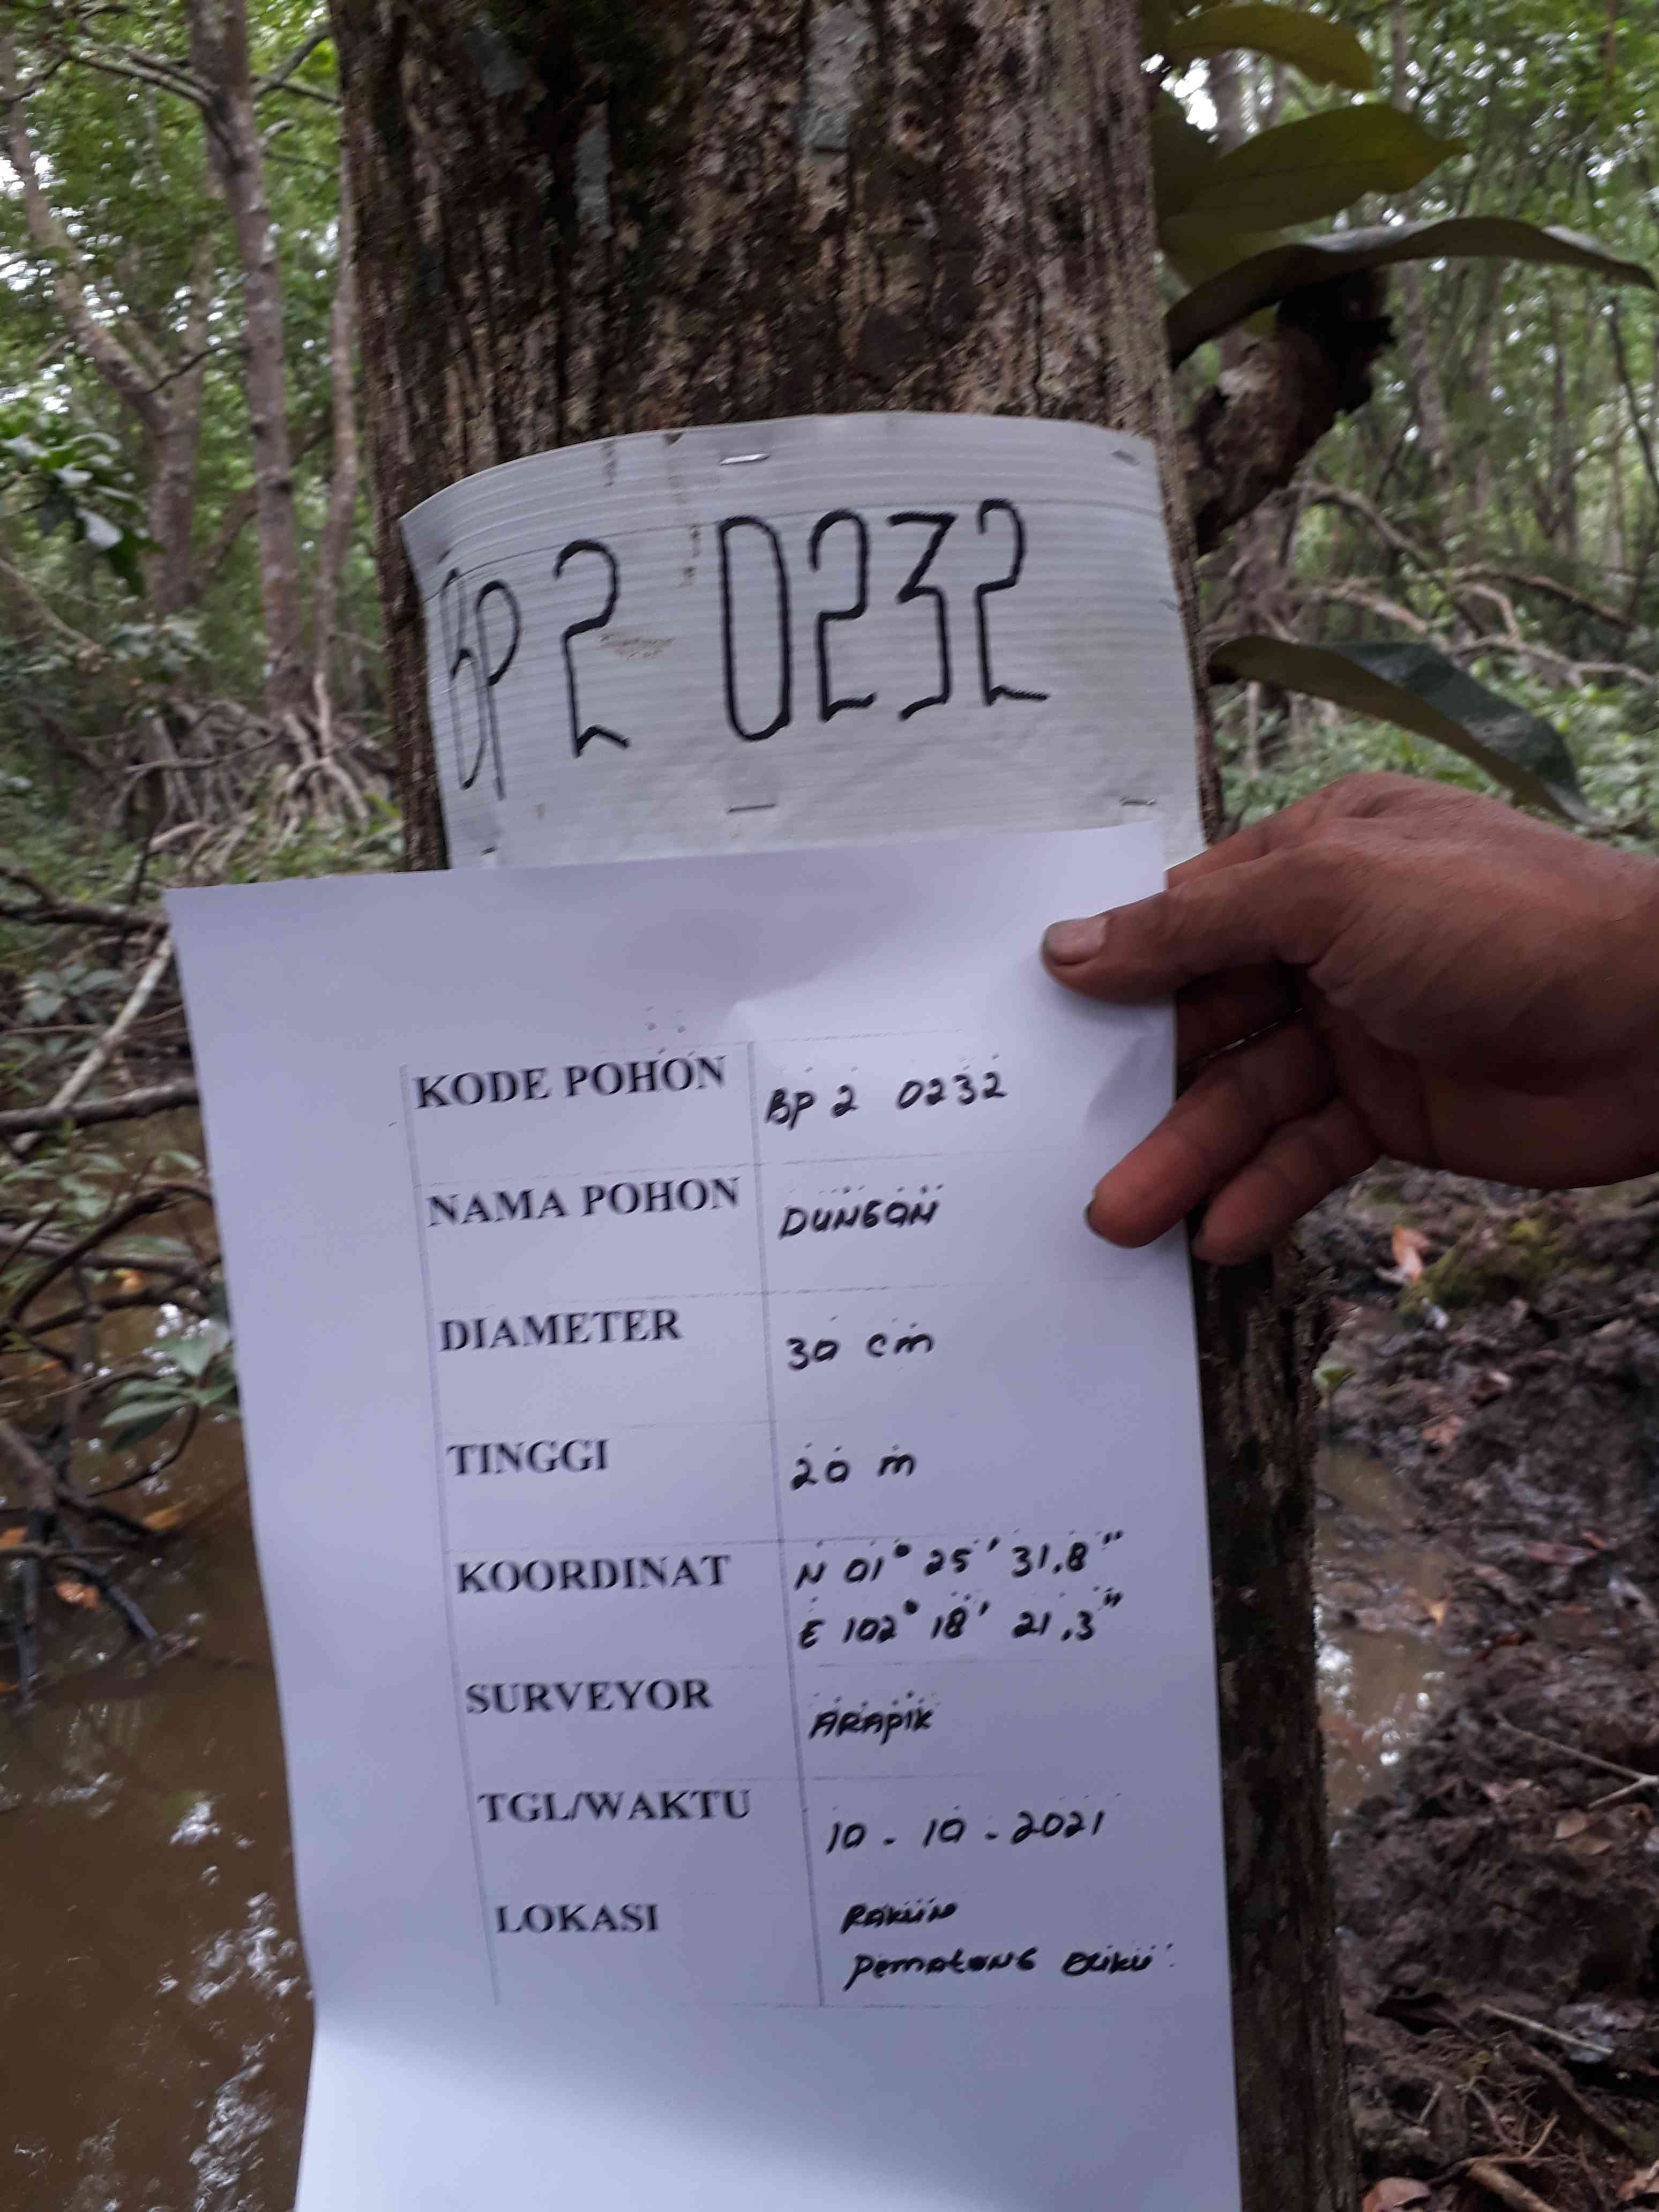 BP 2 0232
KODE POHON BP 2 0232
NAMA POHON DUNGAN
DIAMETER 30 cm
TINGGI 20 m
KOORDINAT N 01° 25' 31.8"
E 102° 18' 21,3"
SURVEYOR ARAPIK
TGL/WAKTU 10 - 10 - 2021
LOKASI
Pematang